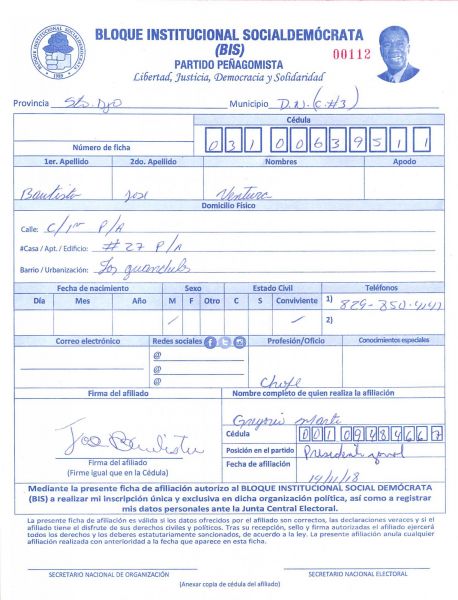 BLOQUE INSTITUCIONAL SOCIALDEMÓCRATA
(BIS)
00112
PARTIDO PEÑAGOMISTA
Libertad, Justicia, Democracia y Solidaridad
Provincia Sto. Dgo Municipio D.N. (C.#3)
Cédula
Número de ficha 031 0063951 1
1er. Apellido 2do. Apellido Nombres Apodo
Bautista Jose Ventura
Domicilio Físico
Calle: C/1ra P/A
#Casa / Apt. / Edificio: #27 P/A
Barrio / Urbanización: Los guandules
Fecha de nacimiento Sexo Estado Civil Teléfonos
Día Mes Año M F Otro C S Conviviente 1) 829-350-4141
2)
Correo electrónico Redes sociales Profesión/Oficio Conocimientos especiales
@
@
@
Firma del afiliado Nombre completo de quien realiza la afiliación
Gregorio
Cédula 001 0948466 7
Posición en el partido
Firma del afiliado
(Firme igual que en la Cédula)
Fecha de afiliación 19/11/18
Mediante la presente ficha de afiliación autorizo al BLOQUE INSTITUCIONAL SOCIAL DEMÓCRATA
(BIS) a realizar mi inscripción única y exclusiva en dicha organización política, así como a registrar
mis datos personales ante la Junta Central Electoral.
La presente ficha de afiliación es válida si los datos ofrecidos por el afiliado son correctos, las declaraciones veraces y si el
afiliado tiene el disfrute de sus derechos civiles y políticos. Tras su recepción, sello y firma autorizadas el afiliado ejercerá
todos los derechos y los deberes estatutariamente sancionados, de acuerdo a la ley. La presente afiliación anula cualquier
afiliación realizada con anterioridad a la fecha que aparece en esta ficha.
SECRETARIO NACIONAL DE ORGANIZACIÓN SECRETARIO NACIONAL ELECTORAL
(Anexar copia de cédula del afiliado)